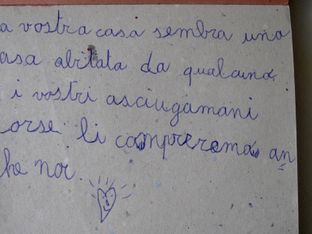 a vostra casa sembra una
asa abitata da qualcuno.
i vostri asciugamani
orse li compreremo an
he noi.